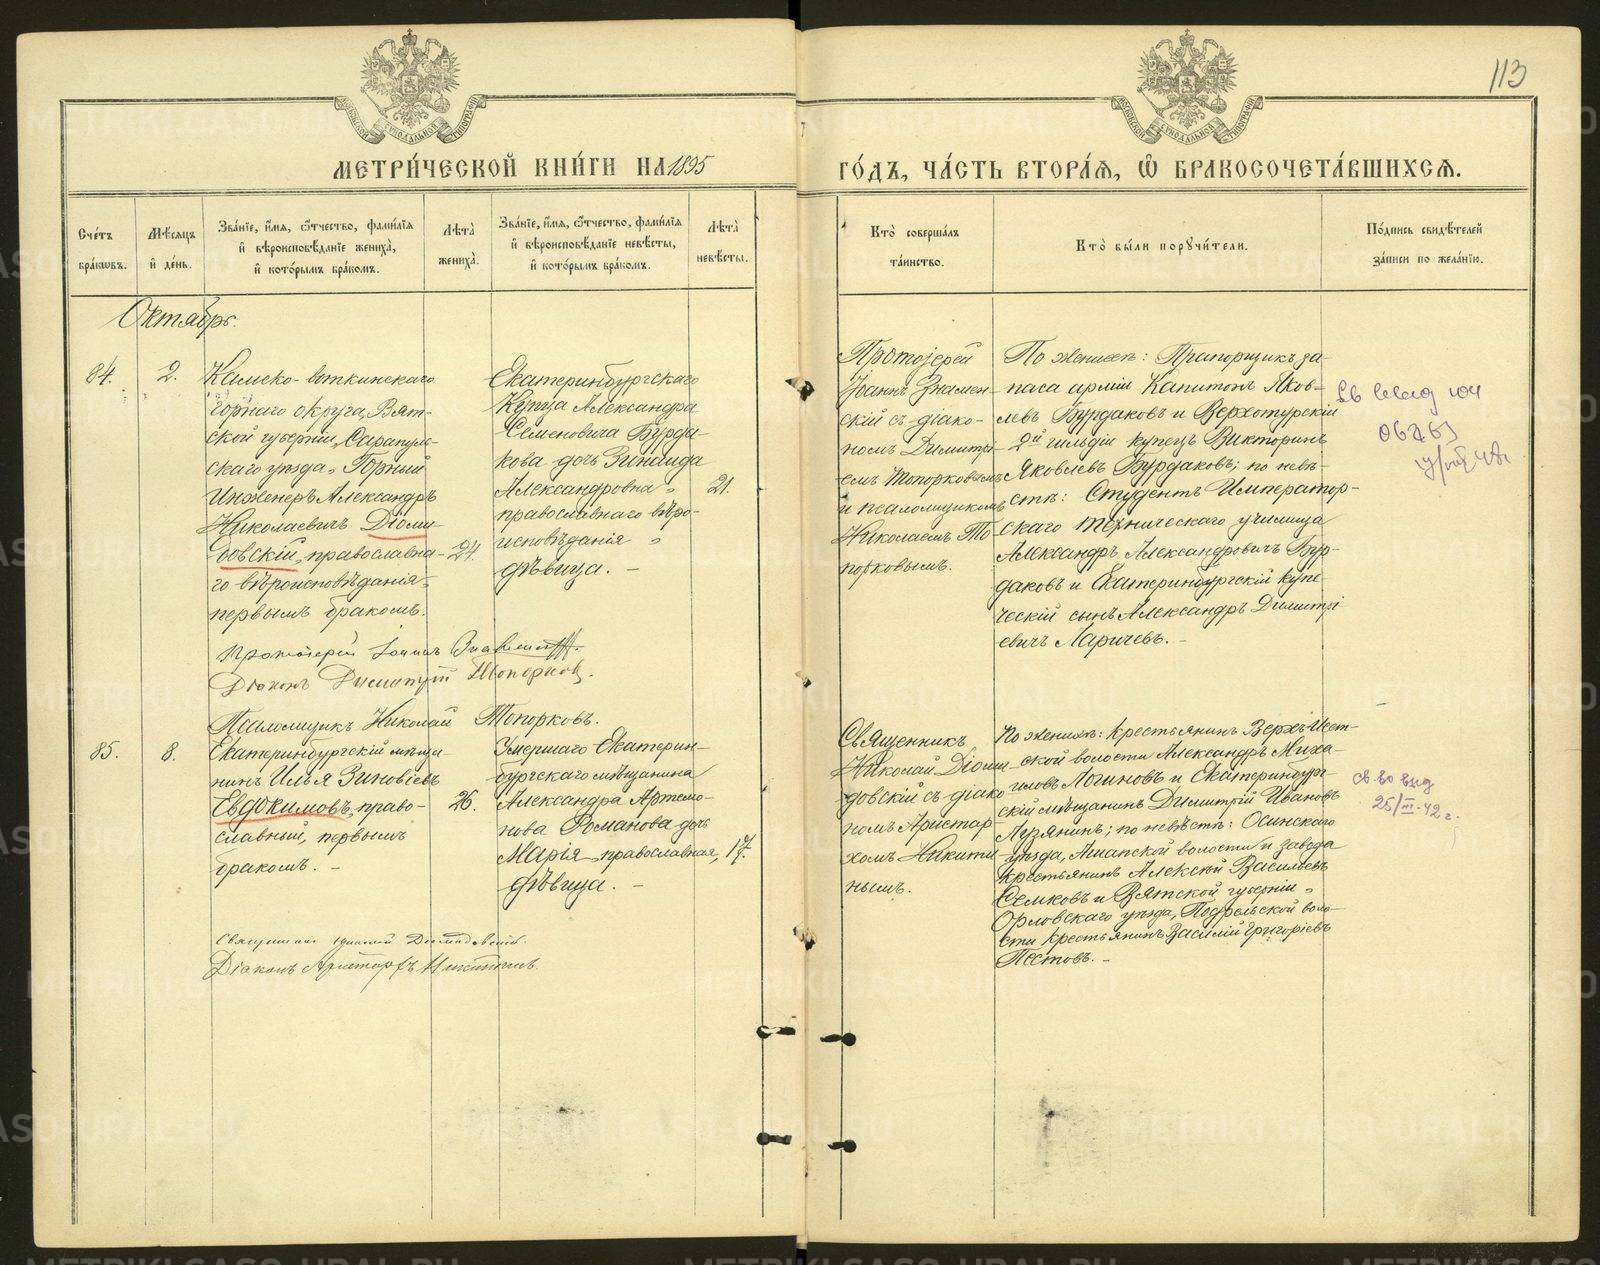 113
МЕТРИ́ЧЕСКОЙ КНИ́ГИ НА 1895
ГО́ДЪ, ЧА́СТЬ ВТОРА́Я, Ѽ БРАКОСОЧЕТА́ВШИХСЯ.
Сче́тъ бра́ковъ.
Мѣсяцъ и де́нь.
Зва́нїе, и́мя, ѻ́тчество, фами́лїя
и вѣроисповѣ́данїе жениха̀,
и кото́рымъ бра́комъ.
Лѣта̀ жениха̀.
Зва́нїе, и́мя, ѻ́тчество, фами́лїя
и вѣроисповѣ́данїе невѣ́сты,
и кото́рымъ бра́комъ.
Лѣта̀ невѣ́сты.
Кто̀ соверша́лъ
та́инство.
Кто̀ бы́ли порꙋчи́тели.
По́дпись свидѣ́телей
за́писи по жела́нїю.
Октябрь.
84.
2.
Камско-воткинскаго
горнаго округа, Вят-
ской губерніи, Сарапуль-
скаго уѣзда, Горный
Инженеръ Александръ
Николаевичъ Діоми-
довскій, православна-
го вѣроисповѣданія,
первымъ бракомъ.
24.
Екатеринбургскаго
Купца Александра
Семеновича Бурда-
кова дочь Зинаида
Александровна,
православнаго вѣро-
исповѣданія,
дѣвица. –
21.
Протоіерей
Іоаннъ Знамен-
скій съ діако-
номъ Димитрі-
емъ Топорковымъ
и псаломщикомъ
Николаемъ То
порковымъ.
По женихѣ: Прапорщикъ за-
паса арміи Капитонъ Яков-
левъ Бурдаковъ и Верхотурскій
2й гильдіи купецъ Викторинъ
Яковлевъ Бурдаковъ; по невѣ-
стѣ: Студентъ Император-
скаго техническаго училища
Александръ Александровичъ Бур-
даковъ и Екатеринбургскій купе-
ческій сынъ Александръ Димитрі-
евичъ Ларичевъ. –
Протоіерей Іоаннъ
Діаконъ Димитрій Топорковъ.
Псаломщикъ Николай Топорковъ.
85.
8.
Екатеринбургскій мѣща-
нинъ Илья Зиновіевъ
Евдокимовъ, право-
славный, первымъ
бракомъ. –
26.
Умершаго Екатерин-
бургскаго мѣщанина
Александра Артемо-
нова Романова дочь
Марія, православная,
дѣвица. –
17.
Священникъ
Николай Діоми-
довскій съ діако
номъ Аристар
хомъ Никити
нымъ.
По женихѣ: крестьянинъ Верхъ-Исет-
ской волости Александръ Миха-
иловъ Логиновъ и Екатеринбург-
скій мѣщанинъ Димитрій Ивановъ
Лузянинъ; по невѣстѣ: Осинскаго
уѣзда, Ашапской волости и завода
крестьянинъ Алексѣй Васильевъ
Семковъ и Вятской губерніи,
Орловскаго уѣзда, Подрельской воло-
сти крестьянинъ Василій Григоріевъ
Пестовъ. –
25/III-42 г.
Священникъ Николай Діомидовскій.
Діаконъ Аристархъ Никитинъ.
METRIKI.GASO-URAL.RU